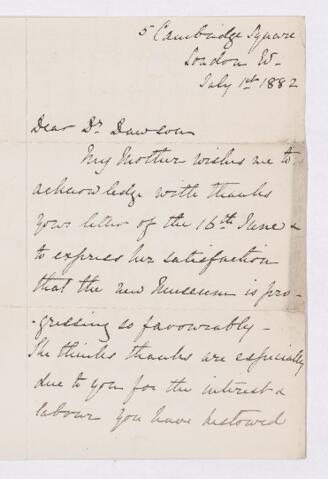 5 Cambridge Square
London W-
July 1st 1882
Dear Dr Dawson
My Mother wishes me to
acknowledge with thanks
your letter of the 16th June &
to express her satisfaction
that the new Museum is pro-
-gressing so favourably -
She thinks thanks are especially
due to you for the interest &
labour you have bestowed